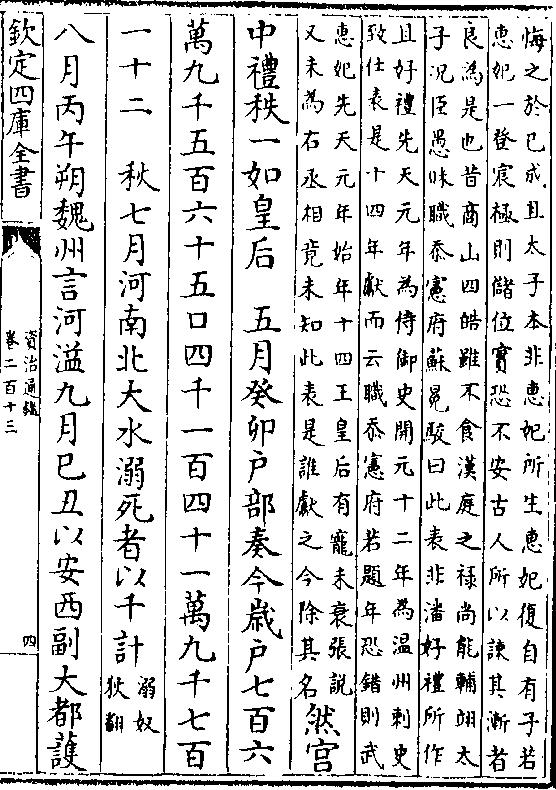 悔之於已成且太子本非惠妃所生惠妃復自有子若
惠妃一登宸極則儲位實恐不安古人所以諫其漸者
良為是也昔商山四皓雖不食漢庭之禄尚能輔翊太
子況臣愚昧職忝憲府蘇冕駮曰此表非潘好禮所作
且好禮先天元年為侍御史開元十二年為温州刺史
致仕表是十四年獻而云職忝憲府若題年恐錯則武
惠妃先天元年始年十四王皇后有寵未衰張說
又未為右丞相竟未知此表是誰獻之今除其名
然宫
中禮秩一如皇后 五月癸卯户部奏今歲户七百六
萬九千五百六十五口四千一百四十一萬九千七百
一十二 秋七月河南北大水溺死者以千計
溺奴
狄翻
八月丙午朔魏州言河溢九月已丑以安西副大都䕶
欽定四庫全書
資治通鑑
卷二百十三
四